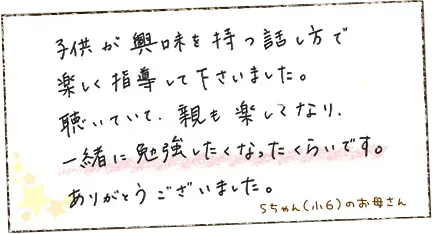 子供が興味を持つ話し方で
楽しく指導して下さいました。
聴いていて、親も楽しくなり、
一緒に勉強したくなったくらいです。
ありがとうございました。
Sちゃん(小6)のお母さん